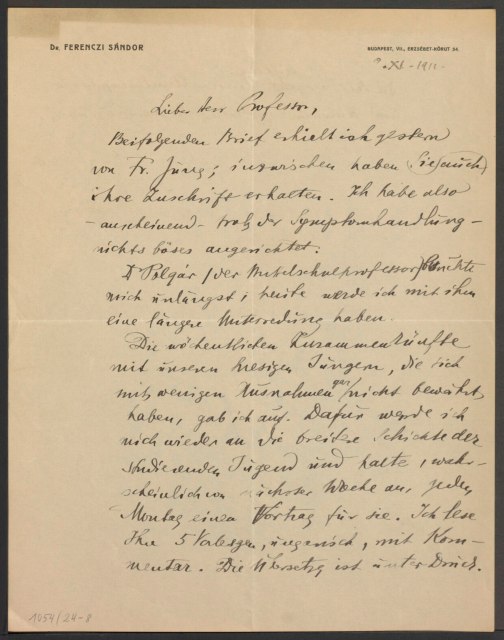 Dr. FERENCZI SÁNDOR
BUDAPEST, VII., ERZSÉBET-KÖRUT 54.
XI. - 1911.
Lieber Herr Professor,
Beifolgenden Brief erhielt ich gestern
von Fr. Jung; inzwischen haben (Sie auch)
ihre Zuschrift erhalten. Ich habe also
- anscheinend - trotz der Symptomhandlung -
nichts böses angerichtet.
D Polgár / der Mittelschulprofessor / besuchte
mich unlängst; heute werde ich mit ihm
eine längere Unterredung haben.
Die wöchentlichen Zusammenkünfte
mit unseren hiesigen Jüngern, die sich
mit wenigen Ausnahmen gar nicht bewährt
haben, gab ich auf. Dafür werde ich
mich wieder an die breitere Schichte der
studierenden Jugend und halte, wahr-
scheinlich von nächster Woche an, jeden
Montag einen Vortrag für sie. Ich lese
Ihre 5 Vorlesgen, ungarisch, mit Kom-
mentar. Die Übersetzg ist unter Druck.
1054/24-8